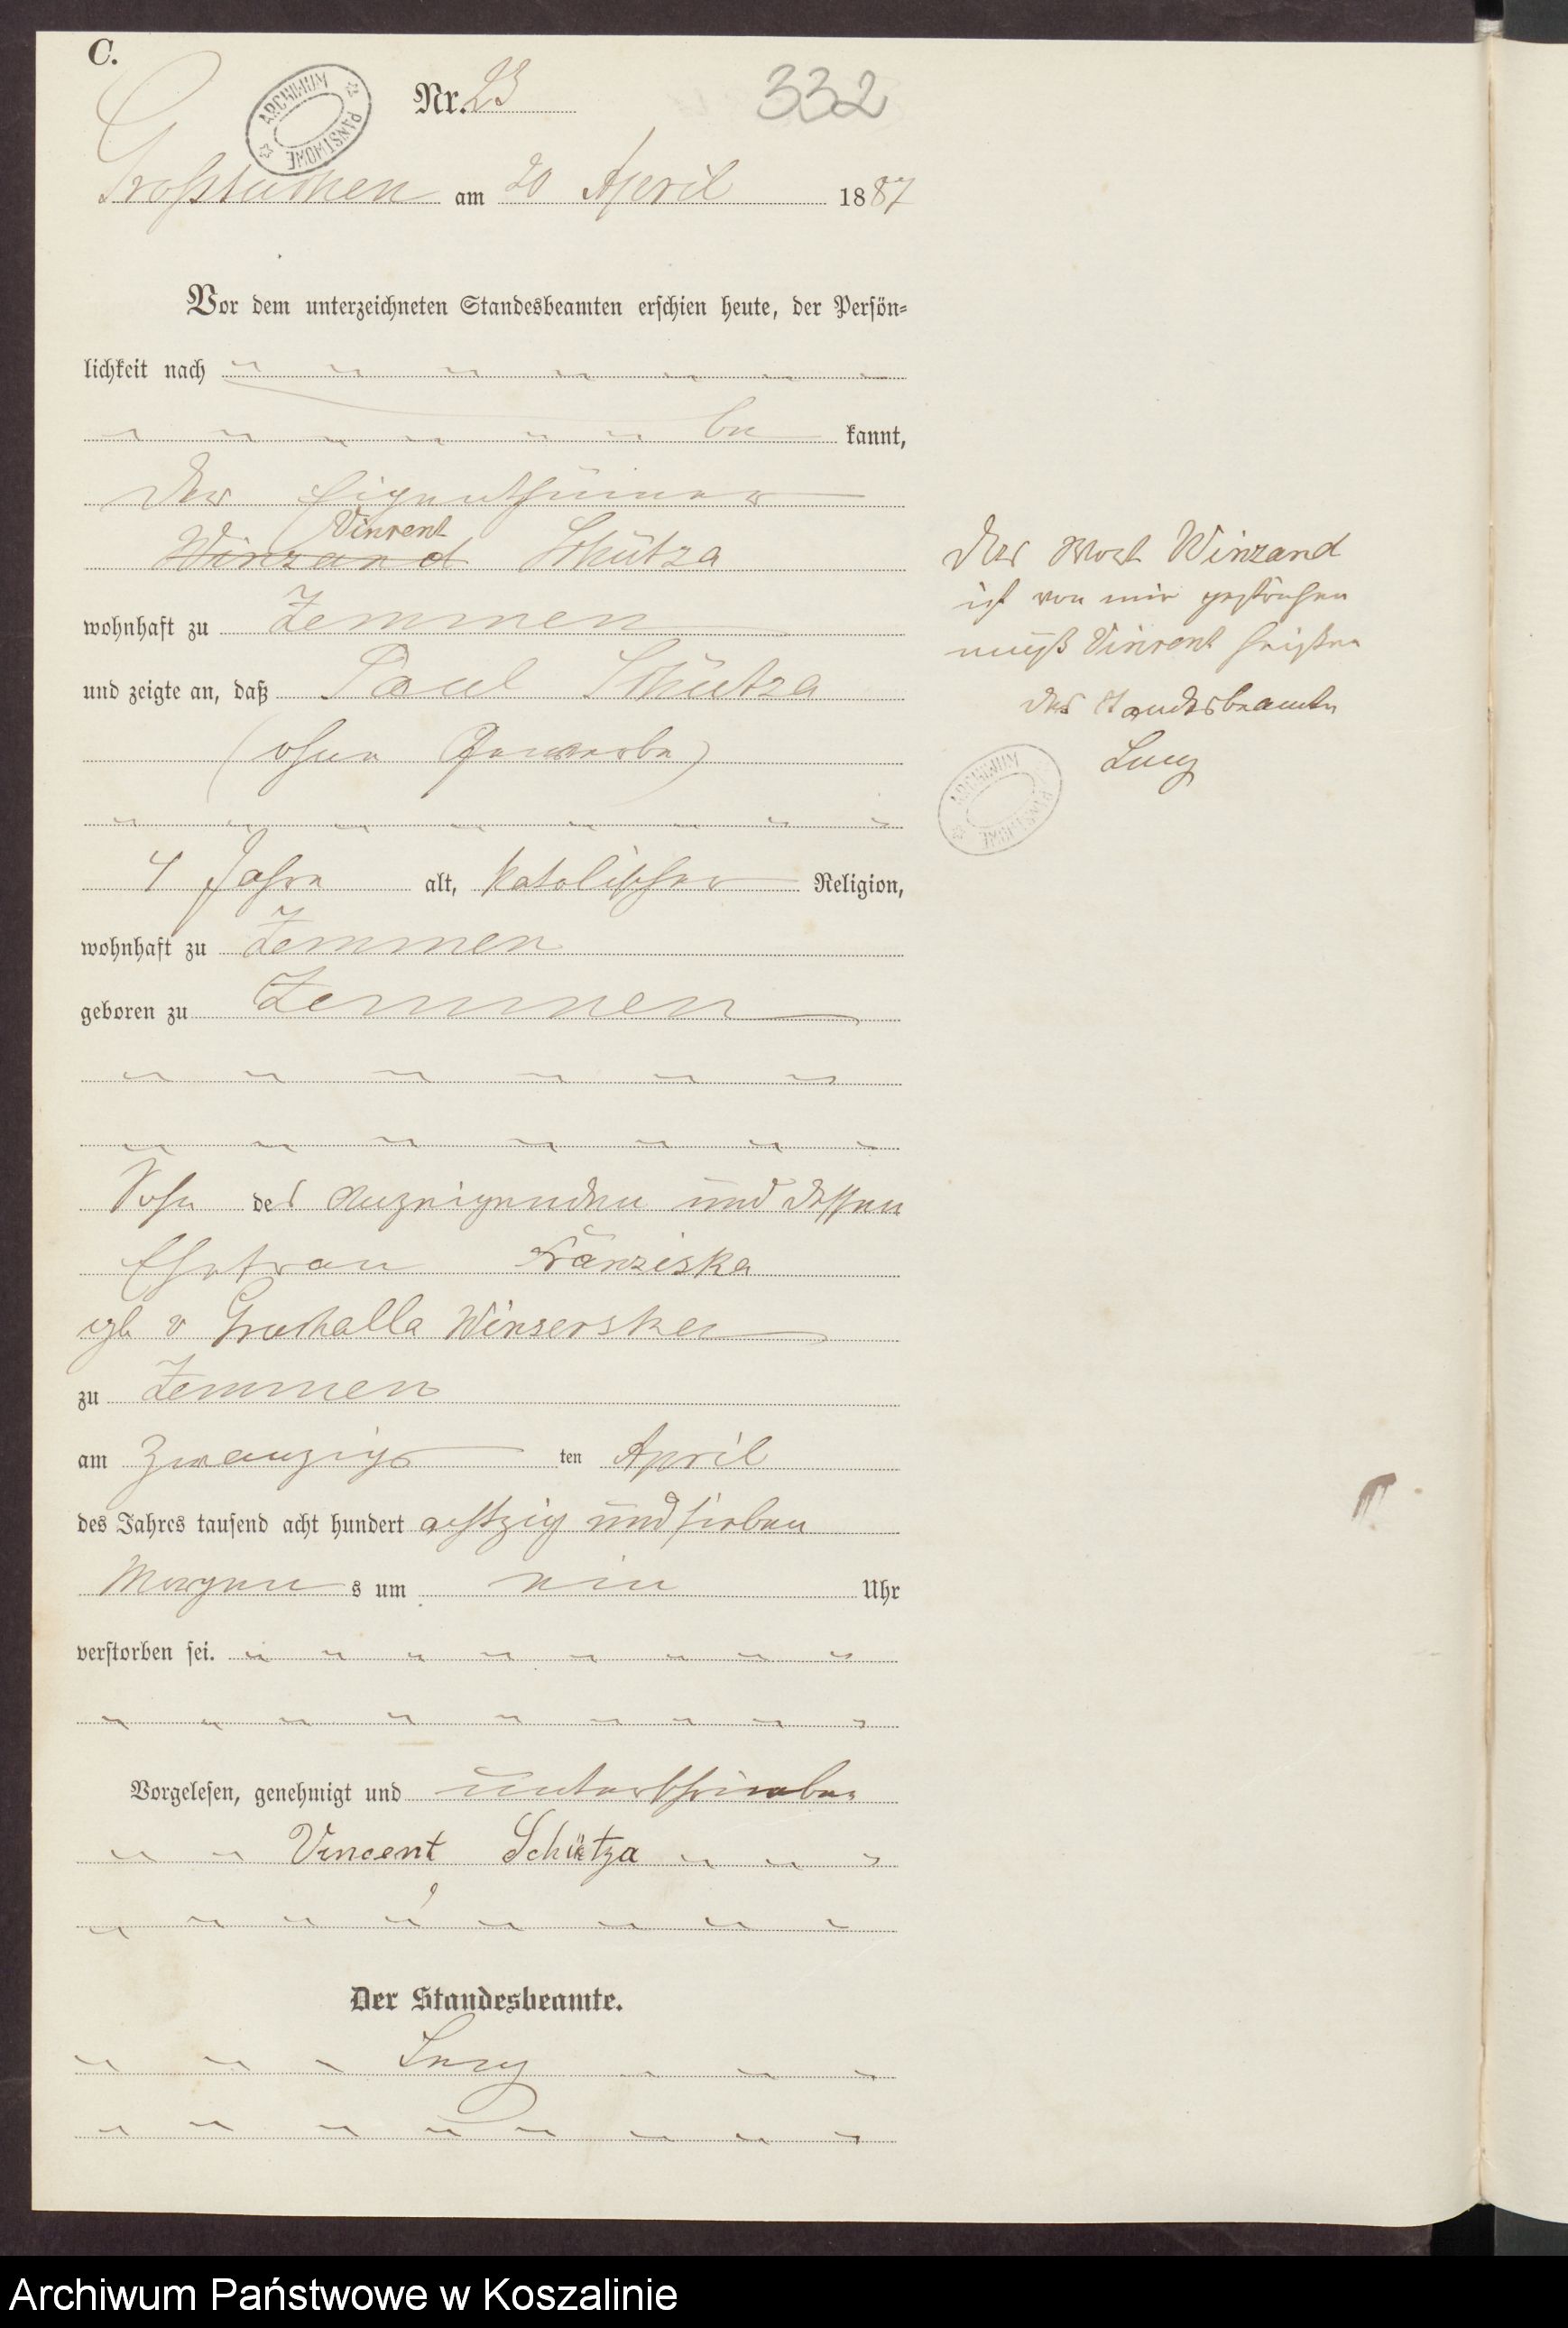 C.
Nr. 23
332
ARCHIWUM PAŃSTWOWE
Großtuchen am 20 April 1887
Vor dem unterzeichneten Standesbeamten erschien heute, der Persön=
lichkeit nach
be kannt,
der Eigenthümer
Vincent
Winzand Schütza
wohnhaft zu Zemmen
und zeigte an, daß Paul Schütza
(ohne Gewerbe)
4 Jahre alt, katolischer Religion,
wohnhaft zu Zemmen
geboren zu Zemmen
Sohn des Anzeigenden und dessen
Ehefrau Franziska
geb v
zu Zemmen
am Zwanzigs ten April
des Jahres tausend acht hundert achtzig und sieben
Morgen s um ein Uhr
verstorben sei.
Vorgelesen, genehmigt und unterschrieben
Vincent Schütza
Der Standesbeamte.
Das Wort Winzand
ist von mir gestrichen
muß Vincent heißen
der Standesbeamte
ARCHIWUM PAŃSTWOWE
Archiwum Państwowe w Koszalinie